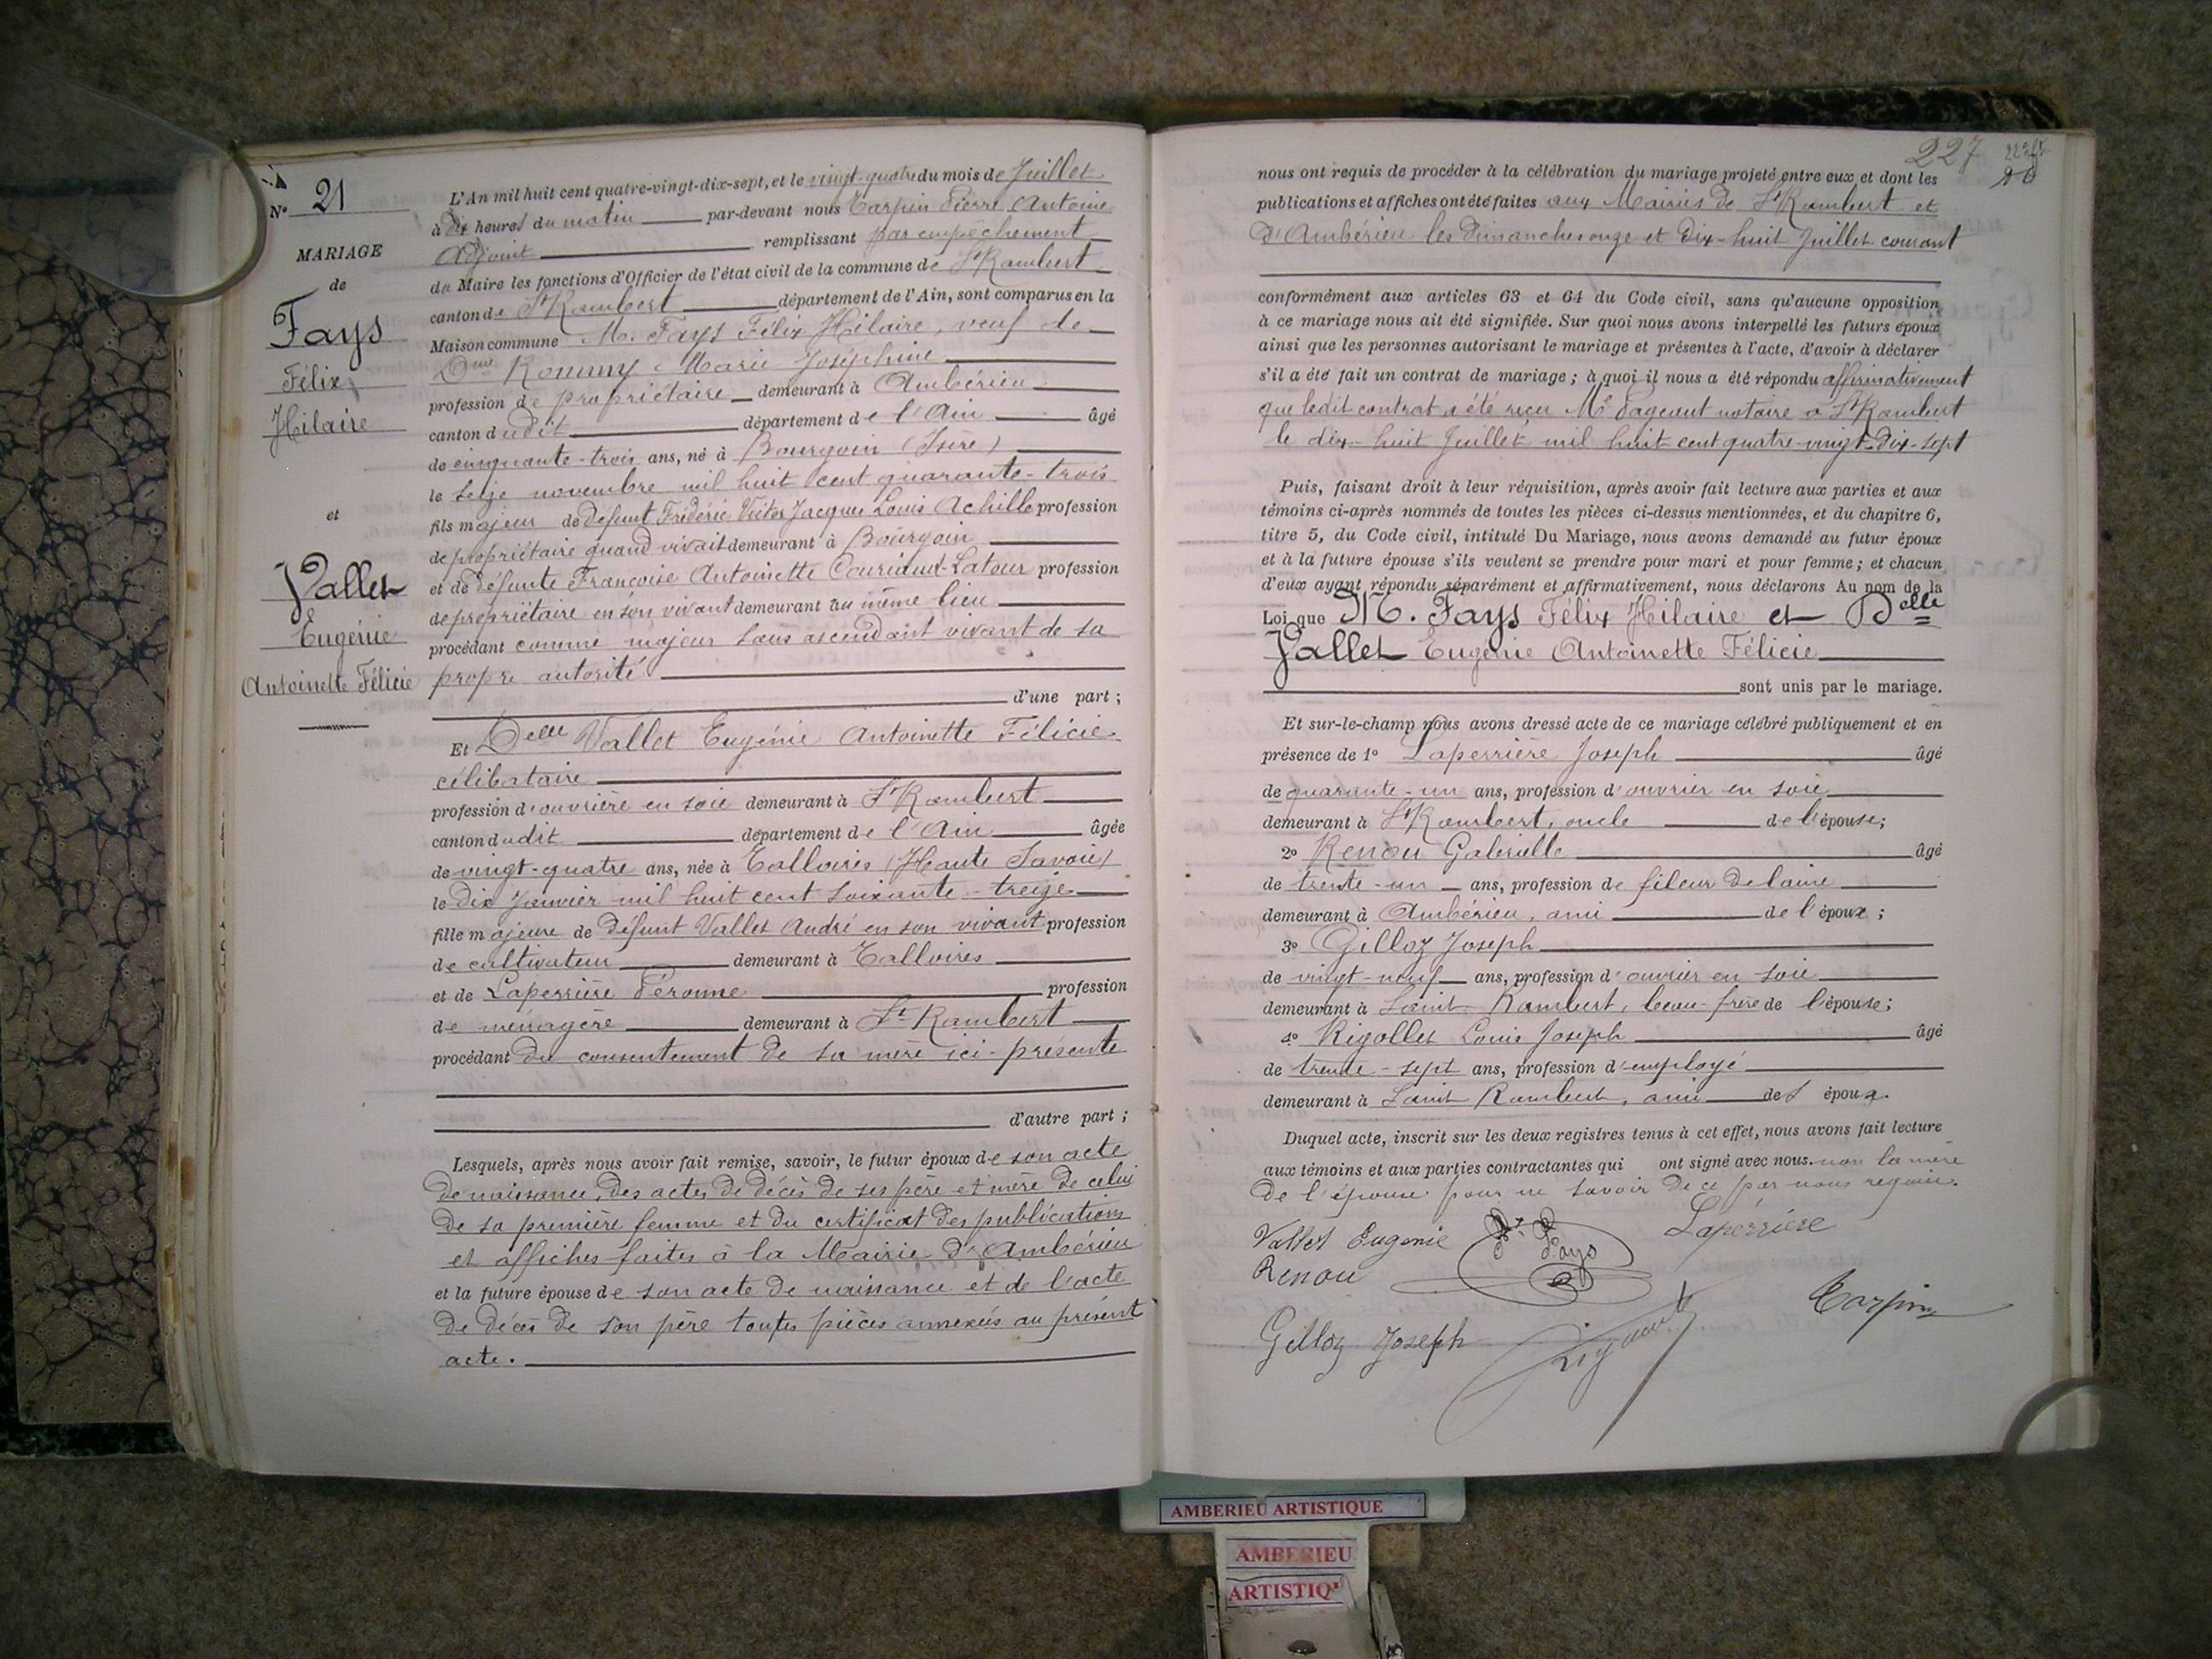 N° 21
MARIAGE
de
Fays
Félix
Hilaire
et
Vallet
Eugénie
Antoinette Félicie
L'An mil huit cent quatre-vingt-dix-sept, et le vingt-quatre du mois de Juillet
à dix heures du matin par-devant nous Carpin Pierre Antoine
Adjoint remplissant par empêchement
du Maire les fonctions d'Officier de l'état civil de la commune de St Rambert
canton de St Rambert département de l'Ain, sont comparus en la
Maison commune M. Fays Félix Hilaire, veuf de
Dme Rommy Marie Joséphine
profession de propriétaire demeurant à Ambérieu
canton dudit département de l'Ain âgé
de cinquante-trois ans, né à Bourgoin (Isère)
le seize novembre mil huit cent quarante-trois
fils majeur de défunt Frédéric Victor Jacques Louis Achille profession
de propriétaire quand vivait demeurant à Bourgoin
et de défunte Françoise Antoinette Couriaud-Latour profession
de propriétaire en son vivant demeurant au même lieu
procédant comme majeur sans ascendant vivant de sa
propre autorité
d'une part ;
Et Delle Vallet Eugénie Antoinette Félicie
célibataire
profession d'ouvrière en soie demeurant à St Rambert
canton dudit département de l'Ain âgée
de vingt-quatre ans, née à Talloires (Haute Savoie)
le dix Janvier mil huit cent soixante-treize
fille majeure de défunt Vallet André en son vivant profession
de cultivateur demeurant à Talloires
et de Laperrière Péronne profession
de ménagère demeurant à St Rambert
procédant du consentement de sa mère ici-présente
d'autre part ;
Lesquels, après nous avoir fait remise, savoir, le futur époux de son acte
de naissance, des actes de décès de ses père et mère de celui
de sa première femme et du certificat des publications
et affiches faites à la Mairie d'Ambérieu
et la future épouse de son acte de naissance et de l'acte
de décès de son père toutes pièces annexées au présent
acte.
227
nous ont requis de procéder à la célébration du mariage projeté entre eux et dont les
publications et affiches ont été faites aux Mairies de St Rambert et
d'Ambérieu les dimanches onze et dix-huit Juillet courant
conformément aux articles 63 et 64 du Code civil, sans qu'aucune opposition
à ce mariage nous ait été signifiée. Sur quoi nous avons interpellé les futurs époux
ainsi que les personnes autorisant le mariage et présentes à l'acte, d'avoir à déclarer
s'il a été fait un contrat de mariage ; à quoi il nous a été répondu affirmativement
que ledit contrat a été reçu Me Pageaut notaire à St Rambert
le dix-huit Juillet mil huit cent quatre-vingt-dix-sept
Puis, faisant droit à leur réquisition, après avoir fait lecture aux parties et aux
témoins ci-après nommés de toutes les pièces ci-dessus mentionnées, et du chapitre 6,
titre 5, du Code civil, intitulé Du Mariage, nous avons demandé au futur époux
et à la future épouse s'ils veulent se prendre pour mari et pour femme ; et chacun
d'eux ayant répondu séparément et affirmativement, nous déclarons Au nom de la
Loi que M. Fays Félix Hilaire et Delle
Vallet Eugénie Antoinette Félicie
sont unis par le mariage.
Et sur-le-champ nous avons dressé acte de ce mariage célébré publiquement et en
présence de 1° Laperrière Joseph âgé
de quarante-un ans, profession d'ouvrier en soie
demeurant à St Rambert, oncle de l'épouse;
2° Renou Gabrielle âgé
de trente-un ans, profession de fileur de laine
demeurant à Ambérieu, ami de l'époux ;
3° Gilloz Joseph
de vingt-neuf ans, profession d'ouvrier en soie
demeurant à Saint-Rambert, beau-frère de l'épouse;
4° Rigollet Louis Joseph âgé
de trente-sept ans, profession d'employé
demeurant à Saint Rambert, ami des époux.
Duquel acte, inscrit sur les deux registres tenus à cet effet, nous avons fait lecture
aux témoins et aux parties contractantes qui ont signé avec nous. non la mère
de l'épouse pour ne savoir de ce par nous requise.
Vallet Eugenie
Fays
Laperrière
Renou
Carpin
Gilloz Joseph
AMBERIEU ARTISTIQUE
AMBERIEU
ARTISTIQ